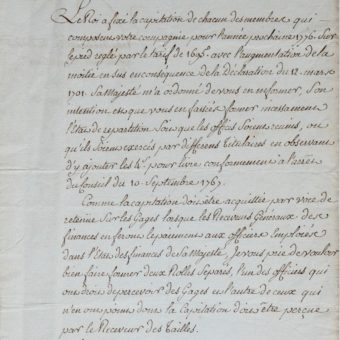 Le Roi a fixé la capitation de chacun des membres qui
composent votre compagnie pour l'année prochaine 1776. Sur
le pied reglé par le tarif de 1695. avec l'augmentation de la
moitié en sus en consequence de la Déclaration du 12. mars
1701. Sa Majesté m'a ordonné de vous en informer, Son
intention est que vous en fassiés former incessament
l'Etat de repartition Soit que les offices Soient reunis, ou
qu'ils Soient exercés par différens titulaires en observant
d'y ajouter les 4d. pour livre conformement a l'arrêt
du Conseil du 10. Septembre 1767.
Comme la capitation doit être acquittée par voie de
retenue Sur les Gages lorsque les Receveurs Généraux des
finances en font le paiement aux officiers Employés
dans l'Etat des finances de Sa Majesté, Je vous prie de vouloir
bien faire former deux Rolles Séparés, l'un des officiers qui
ont droit de percevoir des Gages et l'autre de ceux qui
n'en ont point dont la Capitation doit être perçue
par le Receveur des Tailles.